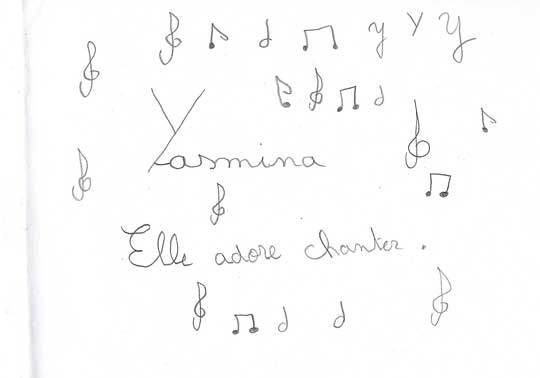 y Y y
Yasmina
Elle adore chanter.